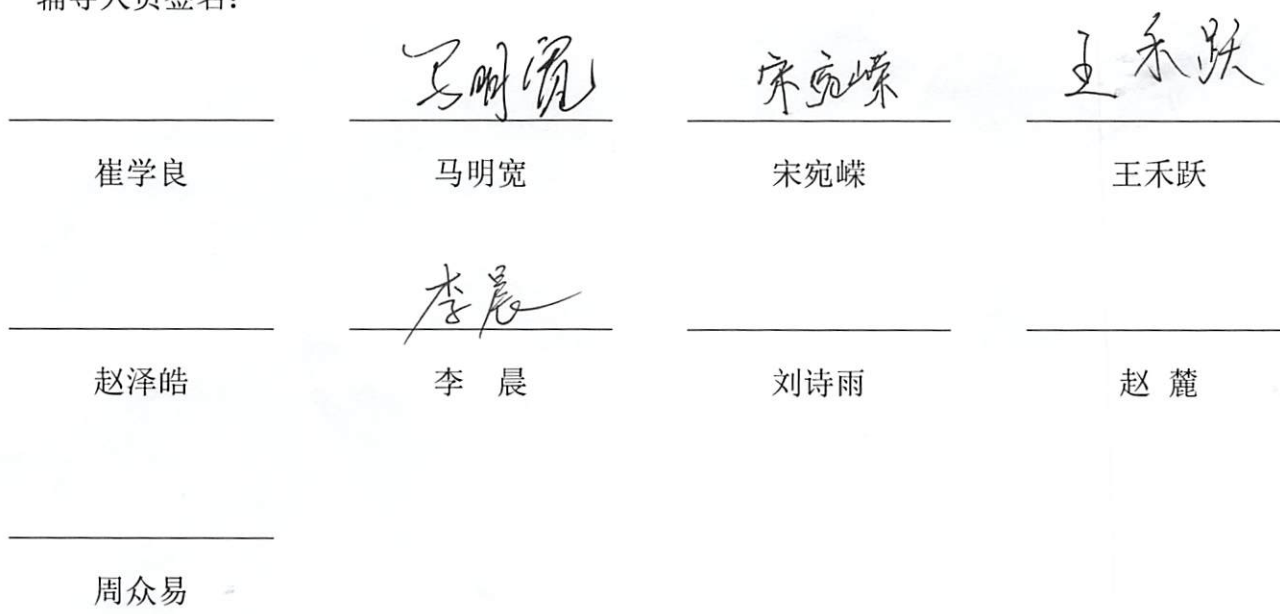 辅导人员签名：
马明宽 宋宛嵘 王禾跃
崔学良 马明宽 宋宛嵘 王禾跃
李晨
赵泽皓 李 晨 刘诗雨 赵 麓
周众易